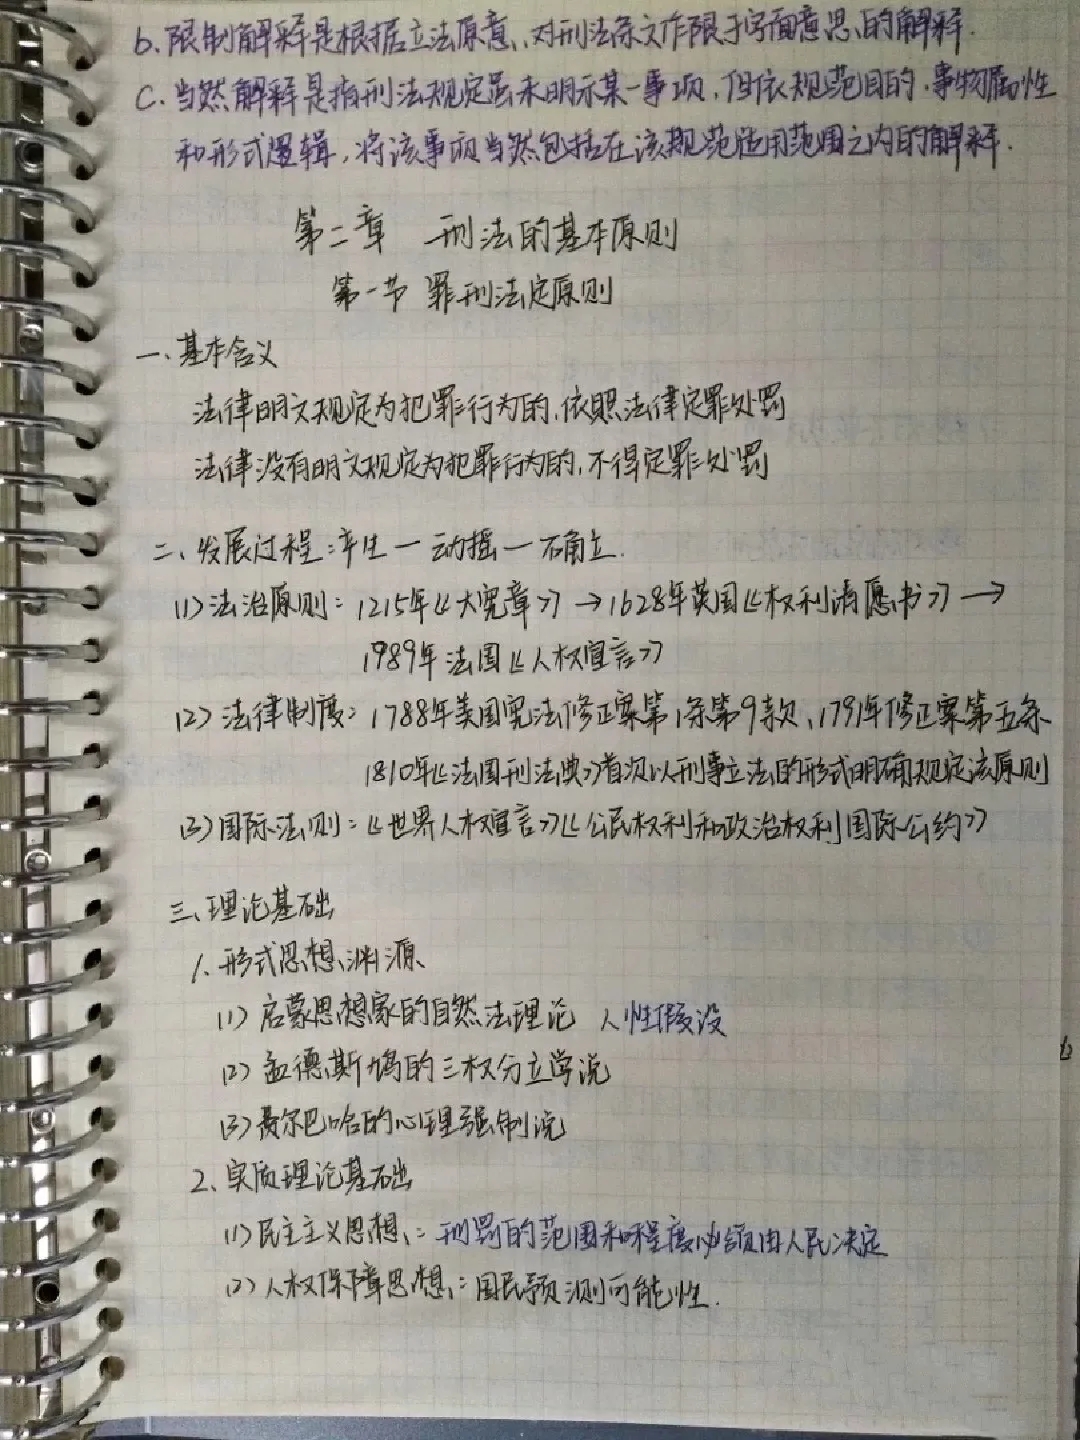 b. 限制解释是根据立法原意、对刑法条文作限于字面意思的解释.
C. 当然解释是指刑法规定虽未明示某一事项, 但依规范目的、事物属性
和形式逻辑, 将该事项当然包括在该规范适用范围之内的解释.
第二章 刑法的基本原则
第一节 罪刑法定原则
一、基本含义
法律明文规定为犯罪行为的, 依照法律定罪处罚
法律没有明文规定为犯罪行为的, 不得定罪处罚
二、发展过程: 产生一动摇一确立.
(1)法治原则: 1215年《大宪章》→1628年英国《权利请愿书》→
1989年法国《人权宣言》
(2)法律制度: 1788年美国宪法修正案第1条第9款, 1791年修正案第五条
1810年《法国刑法典》首次以刑事立法的形式明确规定该原则
(3)国际法则:《世界人权宣言》《公民权利和政治权利国际公约》
三、理论基础
1. 形式思想渊源
(1) 启蒙思想家的自然法理论 人性假设
(2) 孟德斯鸠的三权分立学说
(3) 费尔巴哈的心理强制说
2、实质理论基础
(1)民主主义思想: 刑罚的范围和程度必须由人民决定
(2)人权保障思想: 国民预测可能性.